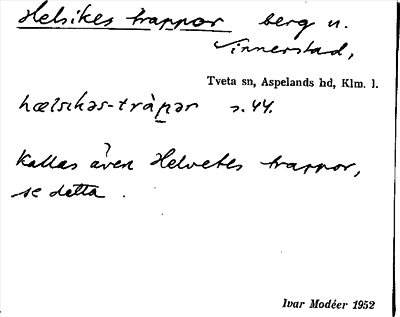 Helsikes trappor berg n.
Vinnerstad,
Tveta sn, Aspelands hd, Klm. l.
hælsikəs-tràpər s. 44.
Kallas även Helvetes trappor,
se detta .
Ivar Modéer 1952